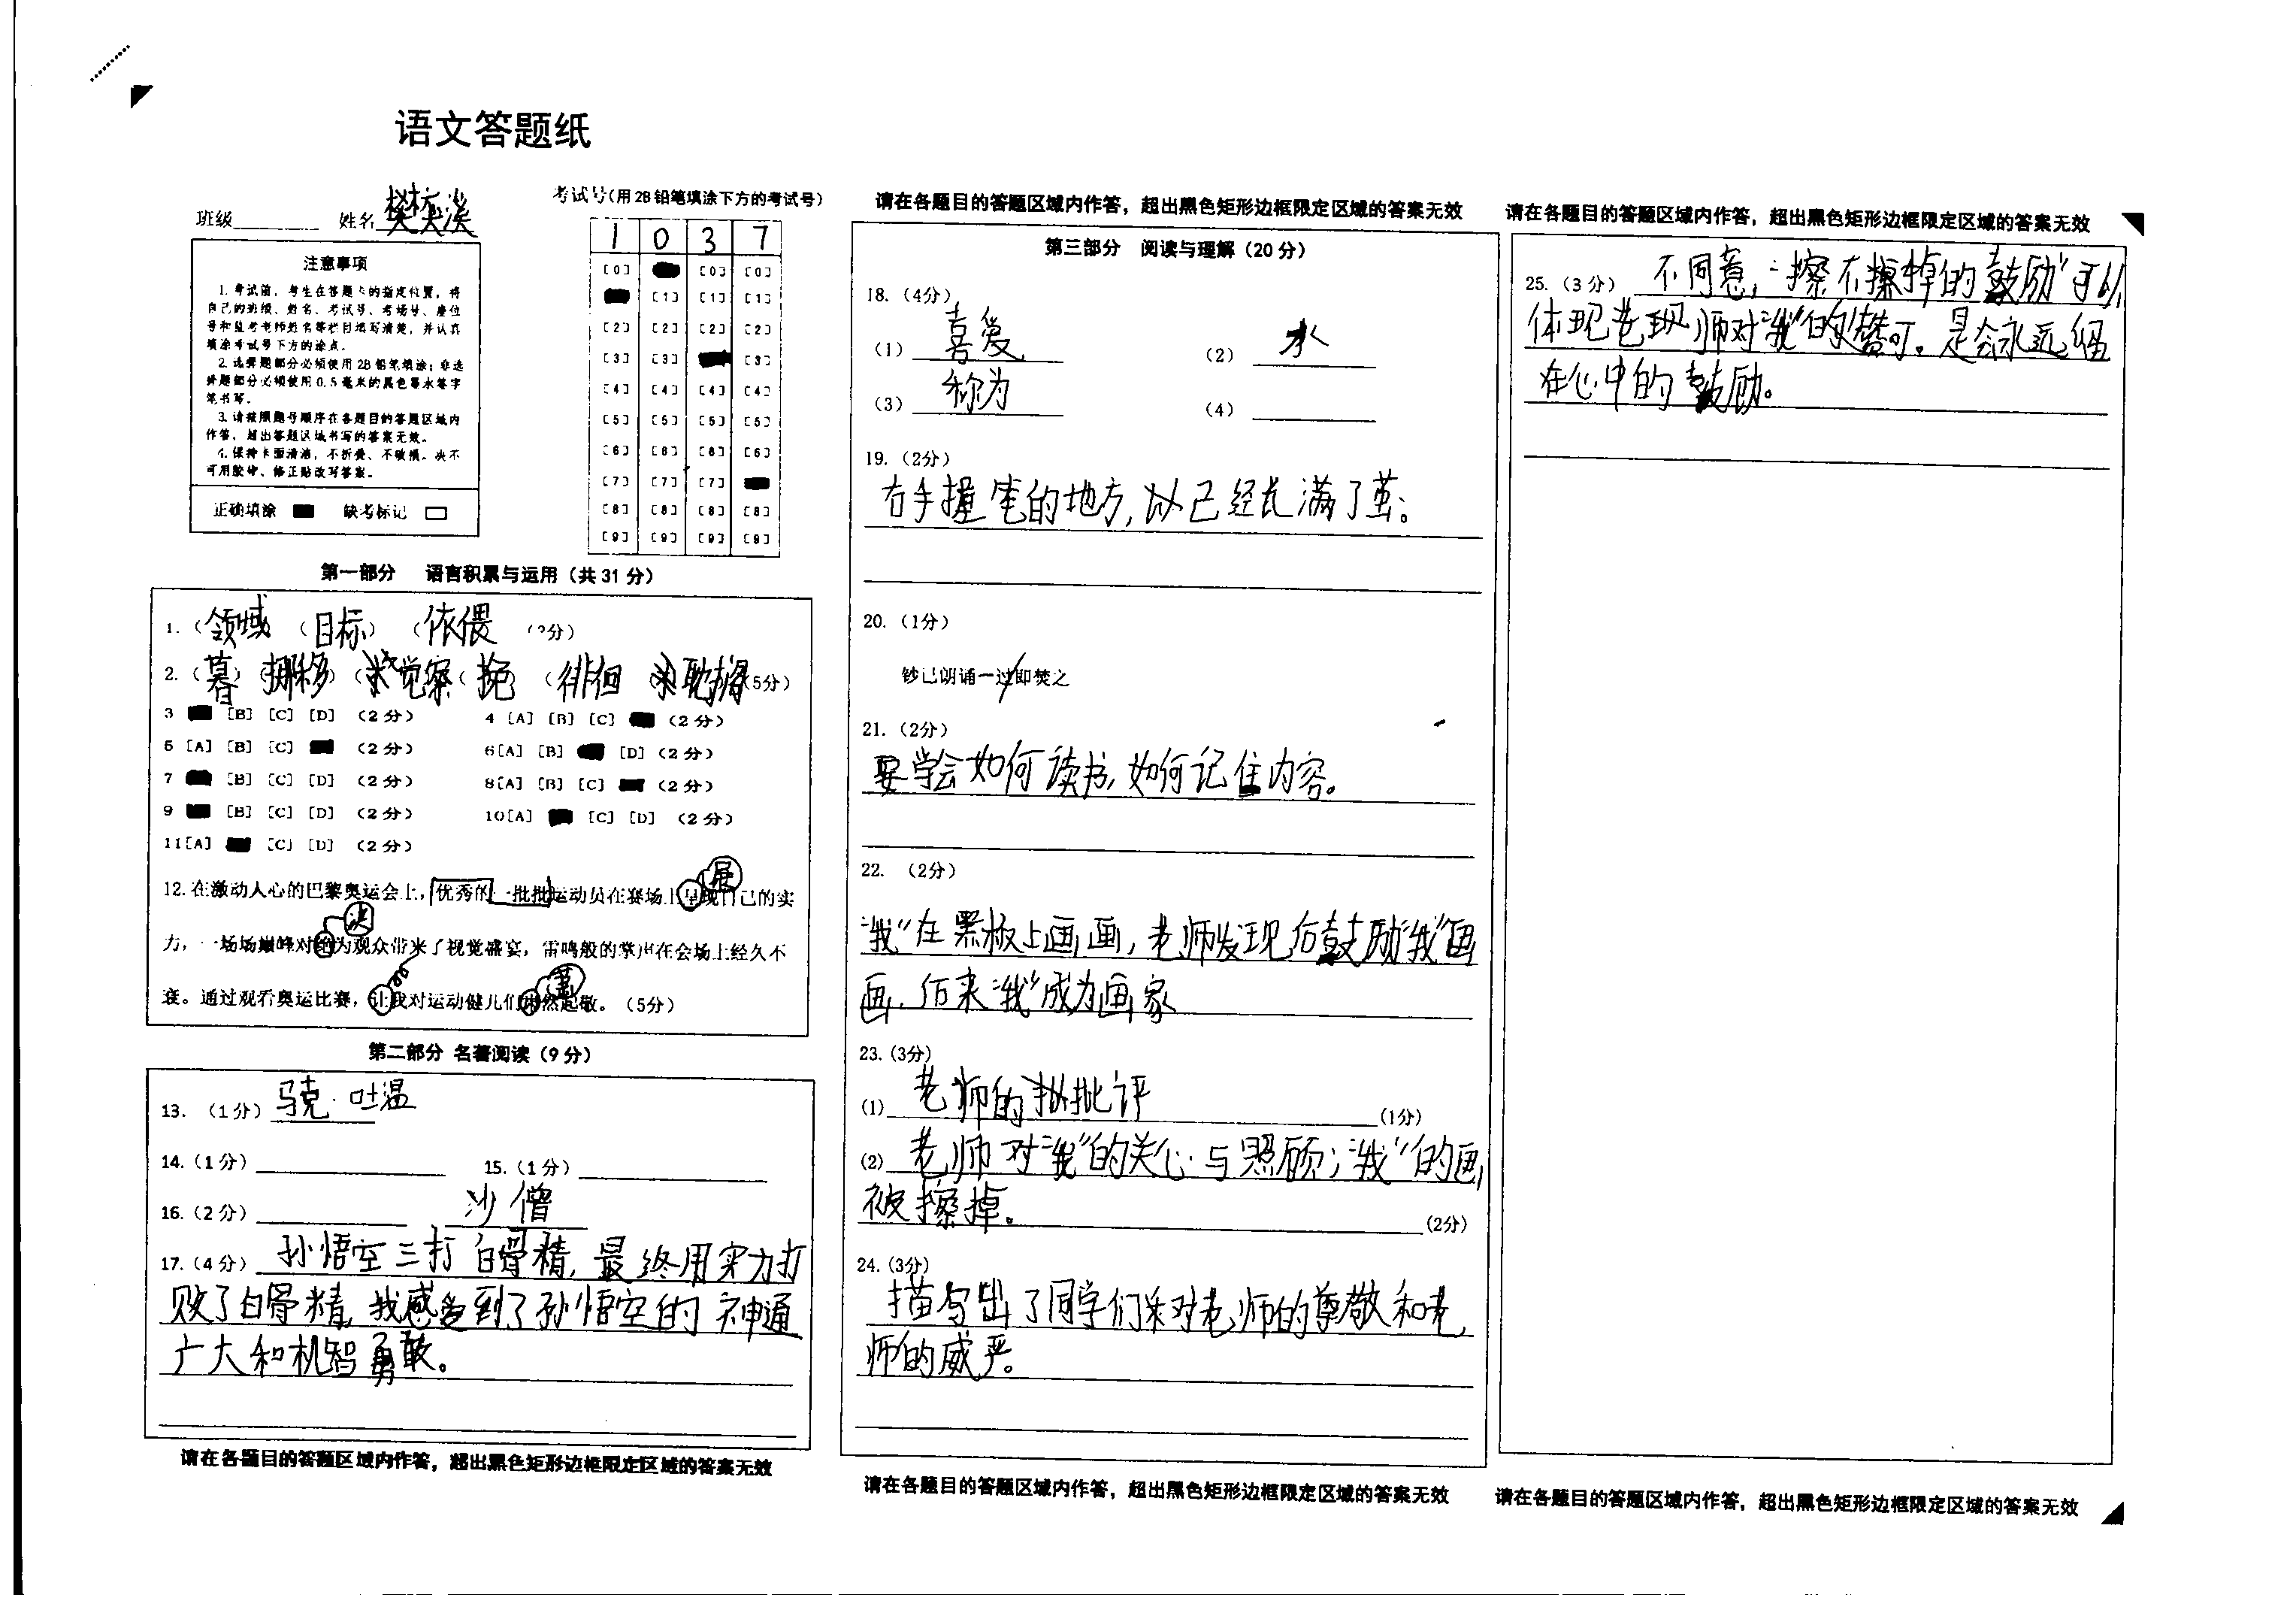 语文答题纸
班级 姓名
考试号(用2B铅笔填涂下方的考试号)
1 0 3 7
注意事项
1.考试前，考生在答题卡的指定位置，将
自己的班级、姓名、考试号、考场号、座位
号和监考老师姓名等栏目填写清楚，并认真
填涂考试号下方的涂点。
2.选择题部分必须使用2B铅笔填涂；非选
择题部分必须使用0.5毫米的黑色墨水签字
笔书写。
3.请按照题号顺序在各题目的答题区域内
作答，超出答题区域书写的答案无效。
4.保持卡面清洁，不折叠、不破损。决不
可用胶带、修正贴改写答案。
正确填涂 缺考标记
[0] [0] [0]
[1] [1] [1]
[2] [2] [2] [2]
[3] [3] [3]
[4] [4] [4] [4]
[5] [5] [5] [5]
[6] [6] [6] [6]
[7] [7] [7]
[8] [8] [8] [8]
[9] [9] [9] [9]
第一部分 语言积累与运用（共31分）
1.（领域（目标）（依偎（3分）
2.（暮）挪移）（觉察（挽（徘徊 耽搁（5分）
3 [B] [C] [D] （2分） 4 [A] [B] [C] （2分）
5 [A] [B] [C] （2分） 6[A] [B] [D]（2分）
7 [B] [C] [D] （2分） 8[A] [B] [C] （2分）
9 [B] [C] [D] （2分） 10[A] [C] [D] （2分）
11[A] [C] [D] （2分）
展
12.在激动人心的巴黎奥运会上，优秀的一批批运动员在赛场上呈现自己的实
决
力，一场场巅峰对绝为观众带来了视觉盛宴，雷鸣般的掌声在会场上经久不
衰。通过观看奥运比赛，让我对运动健儿们肃然起敬。（5分）
第二部分 名著阅读（9分）
13.（1分）马克·吐温
14.（1分） 15.（1分）
16.（2分） 沙僧
17.（4分）孙悟空三打白骨精，最终用实力打
败了白骨精，我感受到了孙悟空的神通
广大和机智勇敢。
请在各题目的答题区域内作答，超出黑色矩形边框限定区域的答案无效
请在各题目的答题区域内作答，超出黑色矩形边框限定区域的答案无效
第三部分 阅读与理解（20分）
18.（4分）
（1）喜爱 （2）水
（3）称为 （4）
19.（2分）
右手握笔的地方，已经长满了茧。
20.（1分）
钞已朗诵一过/即焚之
21.（2分）
要学会如何读书，如何记住内容。
22.（2分）
“我”在黑板上画画，老师发现后鼓励“我”画
画，后来“我”成为画家
23.（3分）
(1)老师的批评 (1分)
(2)老师对“我”的关心与照顾；“我”的画
被擦掉。 (2分)
24.（3分）
描写出了同学们对老师的尊敬和老
师的威严。
请在各题目的答题区域内作答，超出黑色矩形边框限定区域的答案无效
请在各题目的答题区域内作答，超出黑色矩形边框限定区域的答案无效
25.（3分）不同意，“擦不掉的鼓励”可以
体现老师对“我”的赞可。是会永远留
在心中的鼓励。
请在各题目的答题区域内作答，超出黑色矩形边框限定区域的答案无效